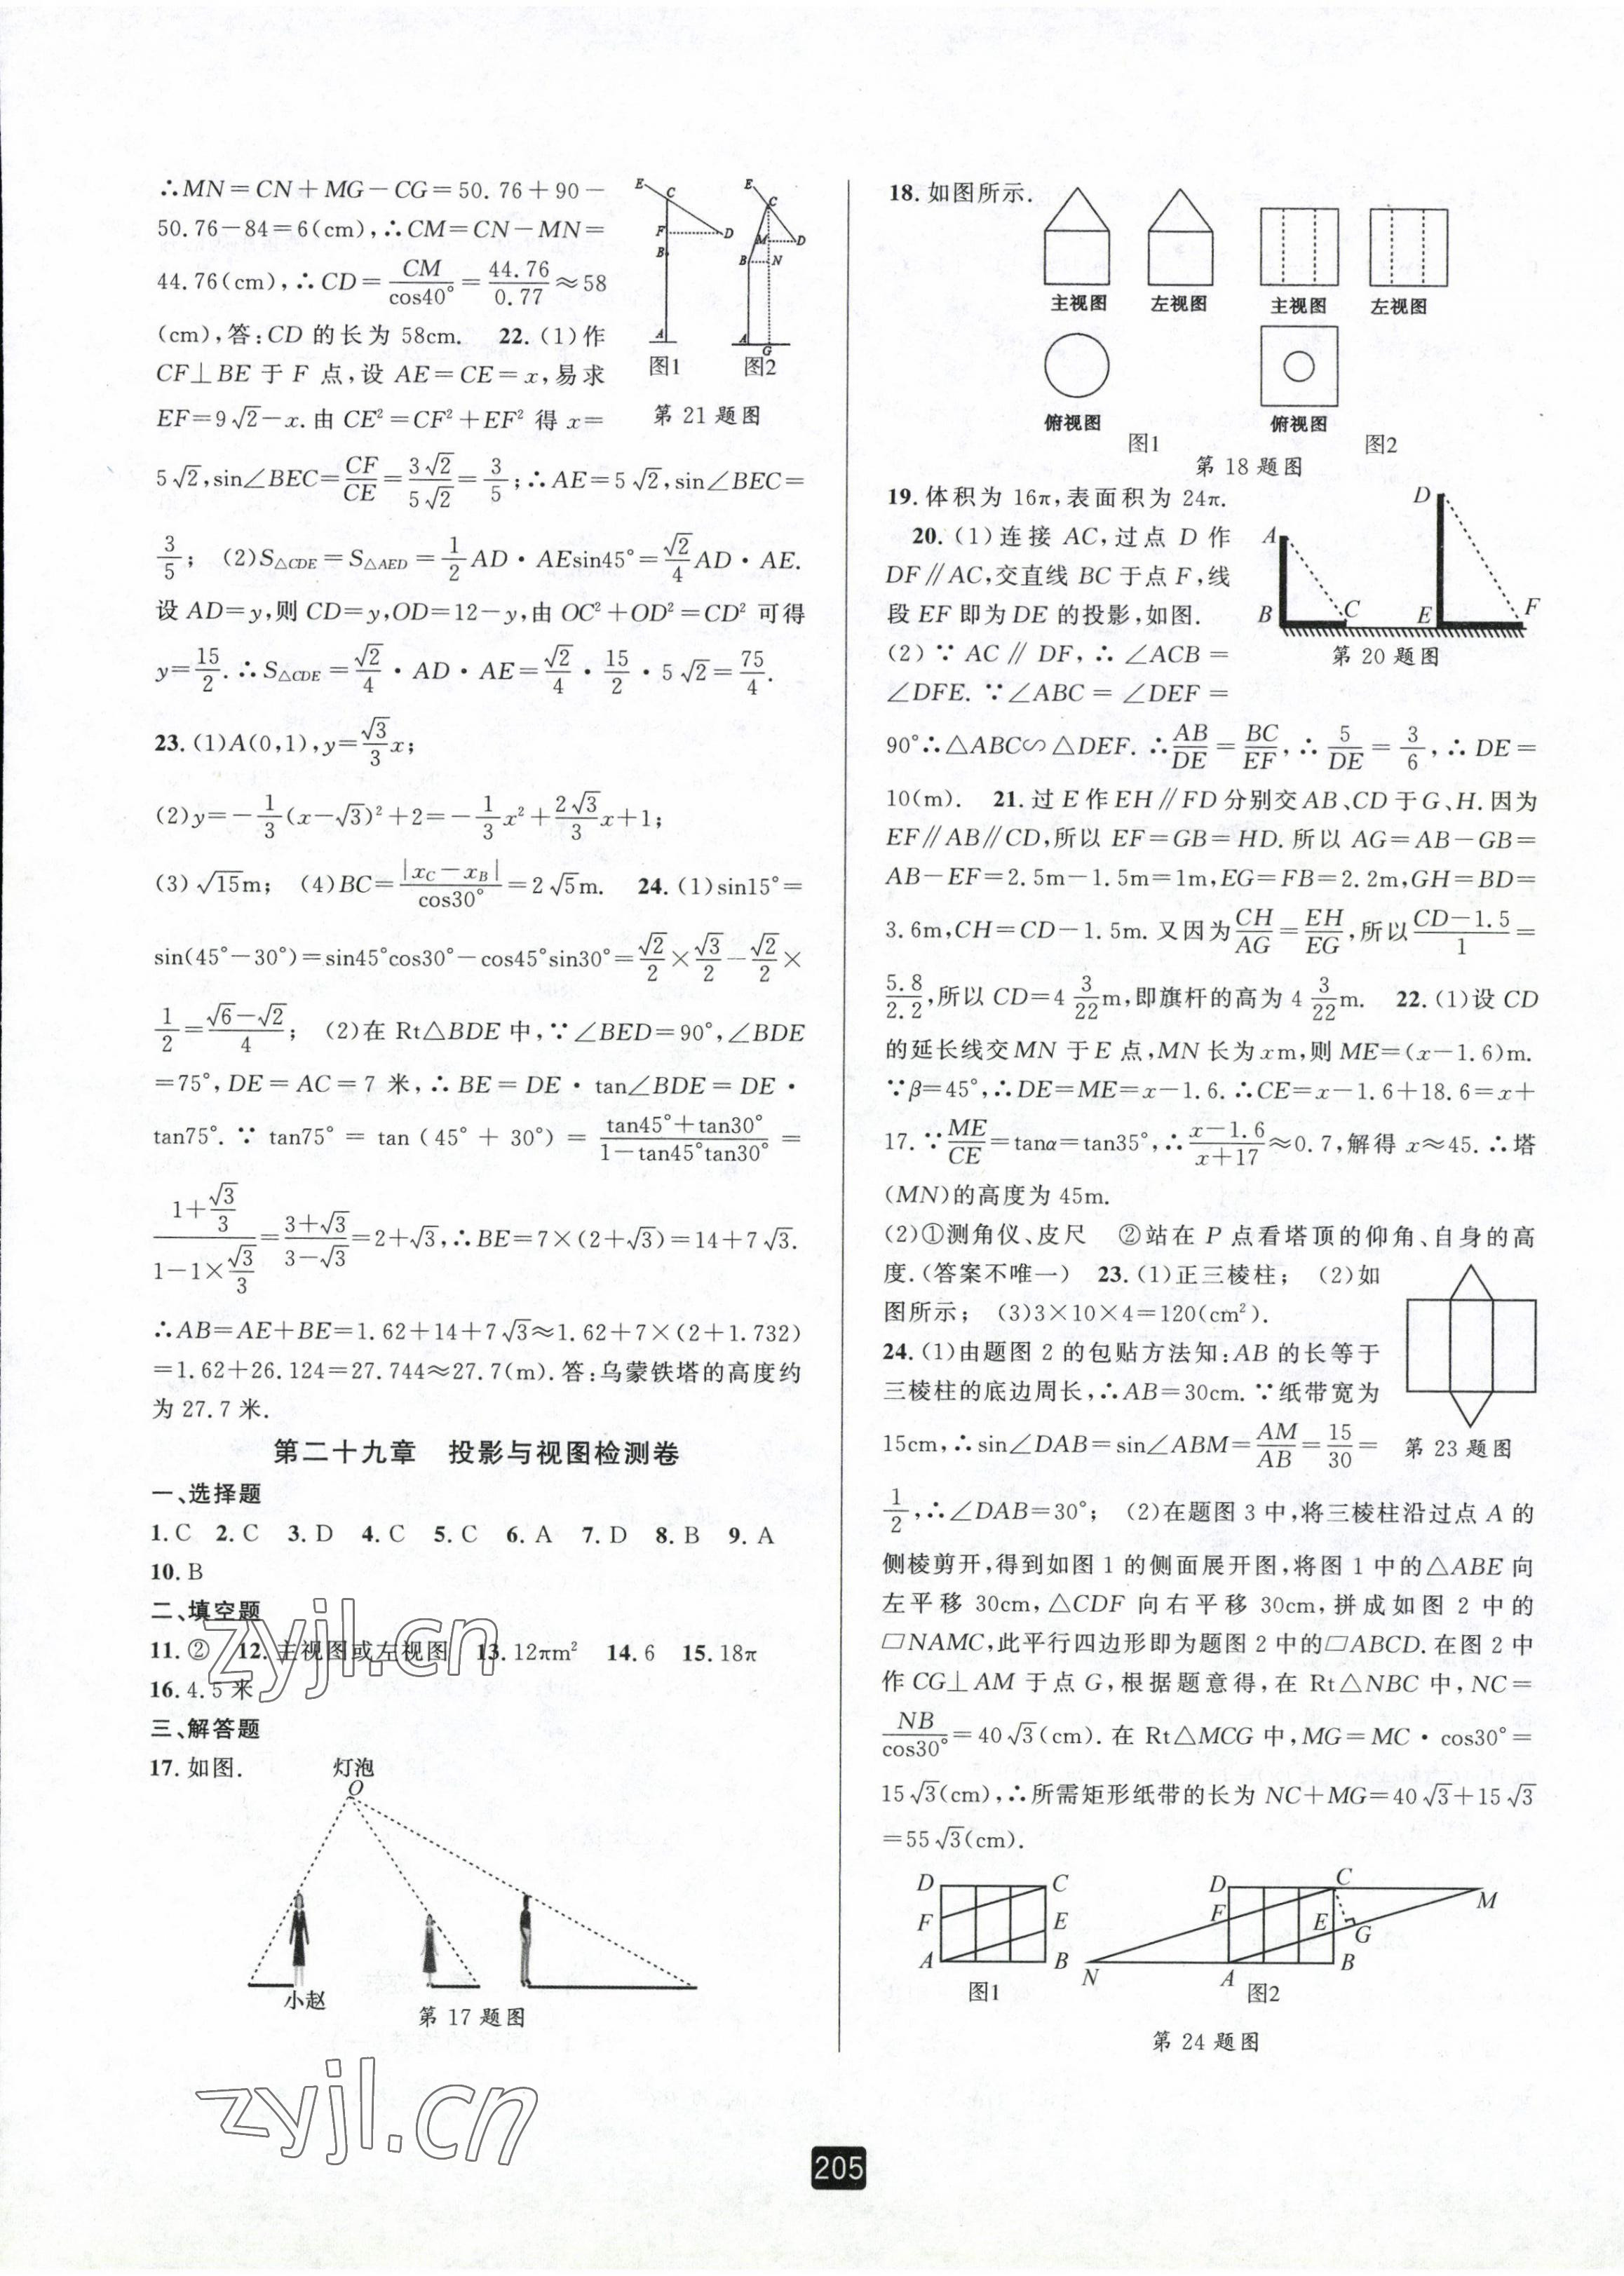 ∴MN=CN+MG-CG=50.76+90-
50.76-84=6(cm),∴CM=CN-MN=
44.76(cm),∴CD=CM/cos40°=44.76/0.77≈58
(cm),答:CD 的长为 58cm. 22.(1)作
CF⊥BE 于 F 点,设 AE=CE=x,易求
EF=9√2-x.由 CE²=CF²+EF² 得 x=
5√2,sin∠BEC=CF/CE=3√2/5√2=3/5;∴AE=5√2,sin∠BEC=
3/5; (2)S△CDE=S△AED=1/2AD·AEsin45°=√2/4AD·AE.
设 AD=y,则 CD=y,OD=12-y,由 OC²+OD²=CD² 可得
y=15/2.∴S△CDE=√2/4·AD·AE=√2/4·15/2·5√2=75/4.
E C F D B A 图1
E C M D B N A G 图2
第 21 题图
23.(1)A(0,1),y=√3/3x;
(2)y=-1/3(x-√3)²+2=-1/3x²+2√3/3x+1;
(3)√15m; (4)BC=|xC-xB|/cos30°=2√5m. 24.(1)sin15°=
sin(45°-30°)=sin45°cos30°-cos45°sin30°=√2/2×√3/2-√2/2×
1/2=(√6-√2)/4; (2)在 Rt△BDE 中,∵∠BED=90°,∠BDE
=75°,DE=AC=7 米,∴BE=DE·tan∠BDE=DE·
tan75°.∵ tan75°=tan(45°+30°)=(tan45°+tan30°)/(1-tan45°tan30°)=
(1+√3/3)/(1-1×√3/3)=(3+√3)/(3-√3)=2+√3,∴BE=7×(2+√3)=14+7√3.
∴AB=AE+BE=1.62+14+7√3≈1.62+7×(2+1.732)
=1.62+26.124=27.744≈27.7(m).答:乌蒙铁塔的高度约
为 27.7 米.
第二十九章 投影与视图检测卷
一、选择题
1.C 2.C 3.D 4.C 5.C 6.A 7.D 8.B 9.A
10.B
二、填空题
11.② 12.主视图或左视图 13.12πm² 14.6 15.18π
16.4.5 米
三、解答题
17.如图.
灯泡
O
小赵
第 17 题图
zyjl.cn
zyjl.cn
18.如图所示.
主视图 左视图 主视图 左视图
俯视图 俯视图
图1 图2
第 18 题图
19.体积为 16π,表面积为 24π.
20.(1)连接 AC,过点 D 作
DF∥AC,交直线 BC 于点 F,线
段 EF 即为 DE 的投影,如图.
(2)∵AC∥DF,∴∠ACB=
∠DFE.∵∠ABC=∠DEF=
A B C D E F
第 20 题图
90°∴△ABC∽△DEF.∴AB/DE=BC/EF,∴5/DE=3/6,∴DE=
10(m). 21.过 E 作 EH∥FD 分别交 AB、CD 于 G、H.因为
EF∥AB∥CD,所以 EF=GB=HD.所以 AG=AB-GB=
AB-EF=2.5m-1.5m=1m,EG=FB=2.2m,GH=BD=
3.6m,CH=CD-1.5m.又因为CH/AG=EH/EG,所以(CD-1.5)/1=
5.8/2.2,所以 CD=4 3/22m,即旗杆的高为 4 3/22m. 22.(1)设 CD
的延长线交 MN 于 E 点,MN 长为 xm,则 ME=(x-1.6)m.
∵β=45°,∴DE=ME=x-1.6.∴CE=x-1.6+18.6=x+
17.∵ME/CE=tanα=tan35°,∴(x-1.6)/(x+17)≈0.7,解得 x≈45.∴塔
(MN)的高度为 45m.
(2)①测角仪、皮尺 ②站在 P 点看塔顶的仰角、自身的高
度.(答案不唯一) 23.(1)正三棱柱; (2)如
图所示; (3)3×10×4=120(cm²).
24.(1)由题图 2 的包贴方法知:AB 的长等于
三棱柱的底边周长,∴AB=30cm.∵纸带宽为
15cm,∴sin∠DAB=sin∠ABM=AM/AB=15/30=
第 23 题图
1/2,∴∠DAB=30°; (2)在题图 3 中,将三棱柱沿过点 A 的
侧棱剪开,得到如图 1 的侧面展开图,将图 1 中的△ABE 向
左平移 30cm,△CDF 向右平移 30cm,拼成如图 2 中的
▱NAMC,此平行四边形即为题图 2 中的▱ABCD.在图 2 中
作 CG⊥AM 于点 G,根据题意得,在 Rt△NBC 中,NC=
NB/cos30°=40√3(cm).在 Rt△MCG 中,MG=MC·cos30°=
15√3(cm),∴所需矩形纸带的长为 NC+MG=40√3+15√3
=55√3(cm).
D C F E A B 图1
D C M F E G N A B 图2
第 24 题图
205